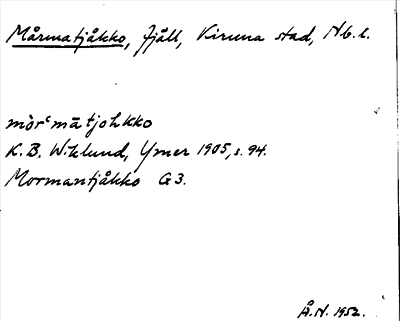 Mårmatjåkko, fjäll, Kiruna stad, Nb. l.
mòrˁmā tjoh̬kko
K.B. Wiklund, Ymer 1905, s. 94.
Mormantjåkko G3.
Å.N. 1952.